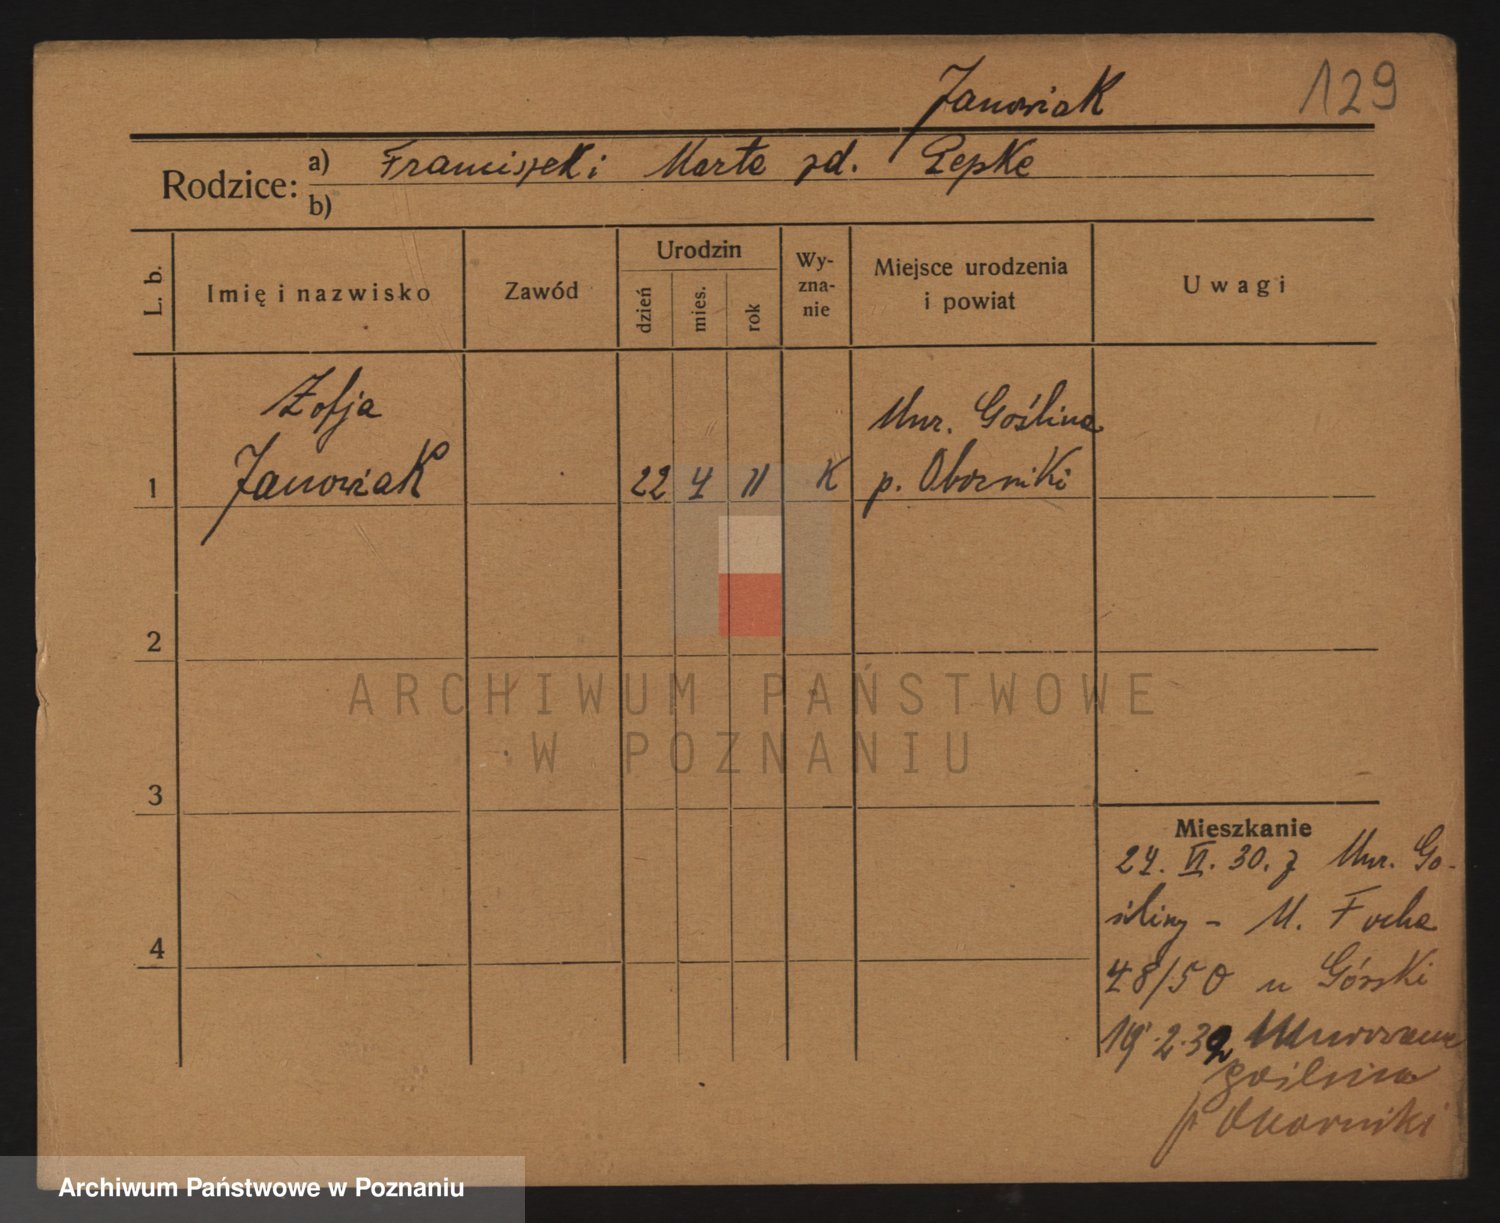 Janowiak 129
Rodzice: a) Franciszek i Marta zd. Pepke
b)
L. b. Imię i nazwisko Zawód Urodzin dzień mies. rok Wyznanie Miejsce urodzenia i powiat Uwagi
Zofja Mur. Goślina
1 Janowiak 22 4 11 K p. Oborniki
2
ARCHIWUM PAŃSTWOWE
W POZNANIU
3
Mieszkanie
24. VI. 30. z Mur. Go-
śliny - M. Focha
4
48/50 u Górski
19.2.32 Murowana
Goślina
p Oborniki
Archiwum Państwowe w Poznaniu